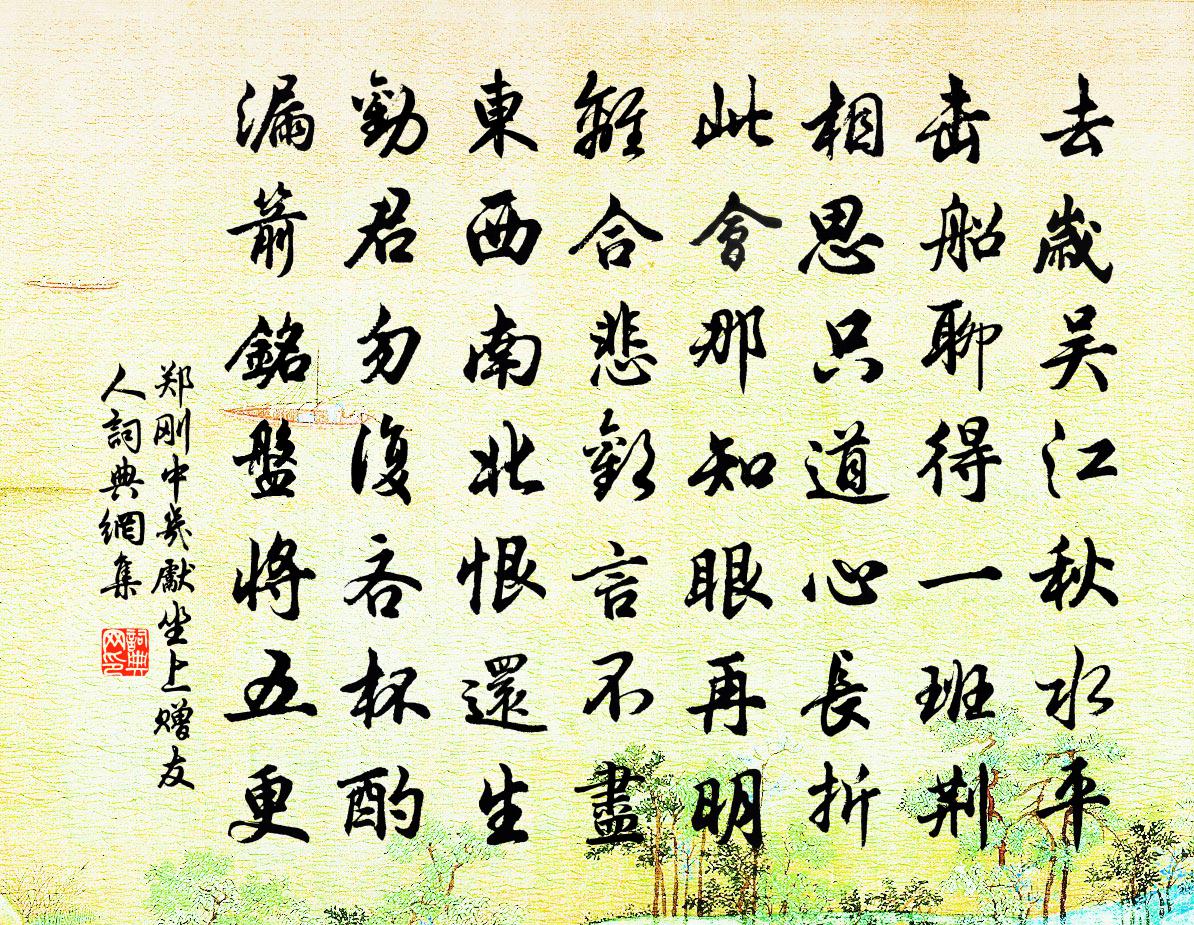 去歲吴江秋水平
击船聊得一班荆
相思只道心長折
此會那知眼再明
離合悲歡言不盡
東西南北恨還生
勸君勿復吝杯酌
漏箭銘盤將五更
郑刚中幾獻坐上赠友
人詞典網集
詞典
网印